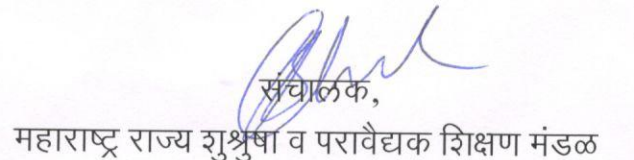 संचालक,
महाराष्ट्र राज्य शुश्रुषा व परावैद्यक शिक्षण मंडळ